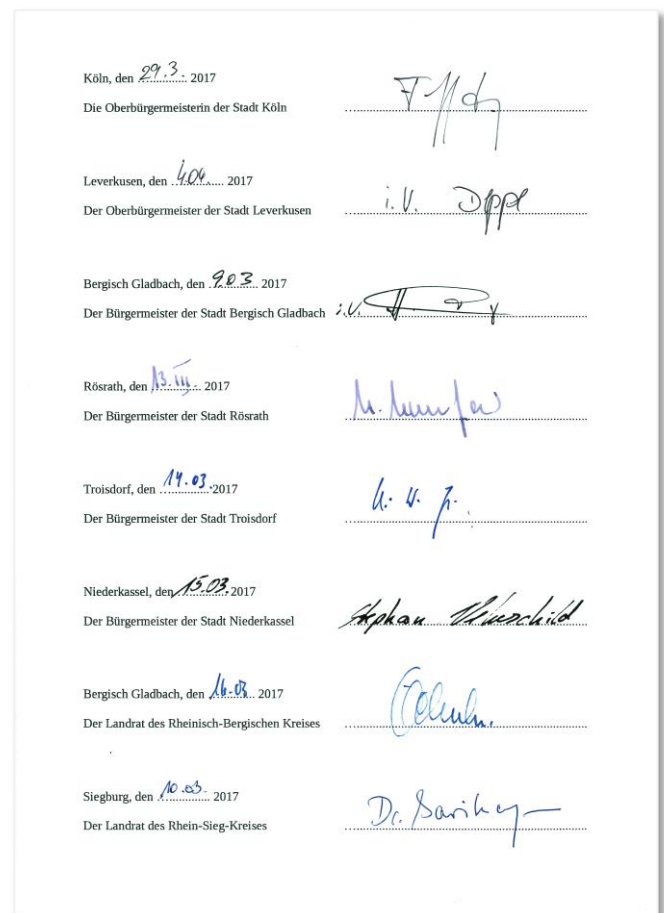 Köln, den 29.3. 2017
Die Oberbürgermeisterin der Stadt Köln
Leverkusen, den 4.04. 2017
Der Oberbürgermeister der Stadt Leverkusen i.V.
Bergisch Gladbach, den 9.03. 2017
Der Bürgermeister der Stadt Bergisch Gladbach i.V.
Rösrath, den 13. III. 2017
Der Bürgermeister der Stadt Rösrath
Troisdorf, den 14.03. 2017
Der Bürgermeister der Stadt Troisdorf
Niederkassel, den 15.03. 2017
Der Bürgermeister der Stadt Niederkassel Stephan
Bergisch Gladbach, den 16.03. 2017
Der Landrat des Rheinisch-Bergischen Kreises
Siegburg, den 10.03. 2017
Der Landrat des Rhein-Sieg-Kreises Dr.